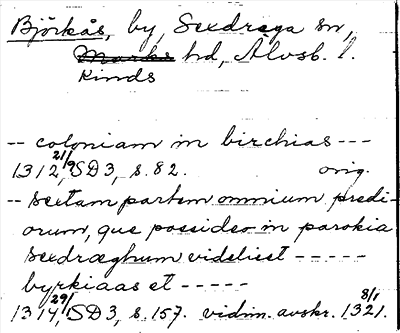 Björkås, by, Sexdrega sn,
Marks hd, Älvsb. l.
Kinds
-- coloniam in birchias ---
1312 21/9, SD3, s. 82. orig.
-- sextam partem omnium predi-
orum, que possideo in parokia
sexdræghum videlicet -----
byrkiaas et -----
1314 29/1, SD3, s. 157. vidim. avskr. 1321 8/1.